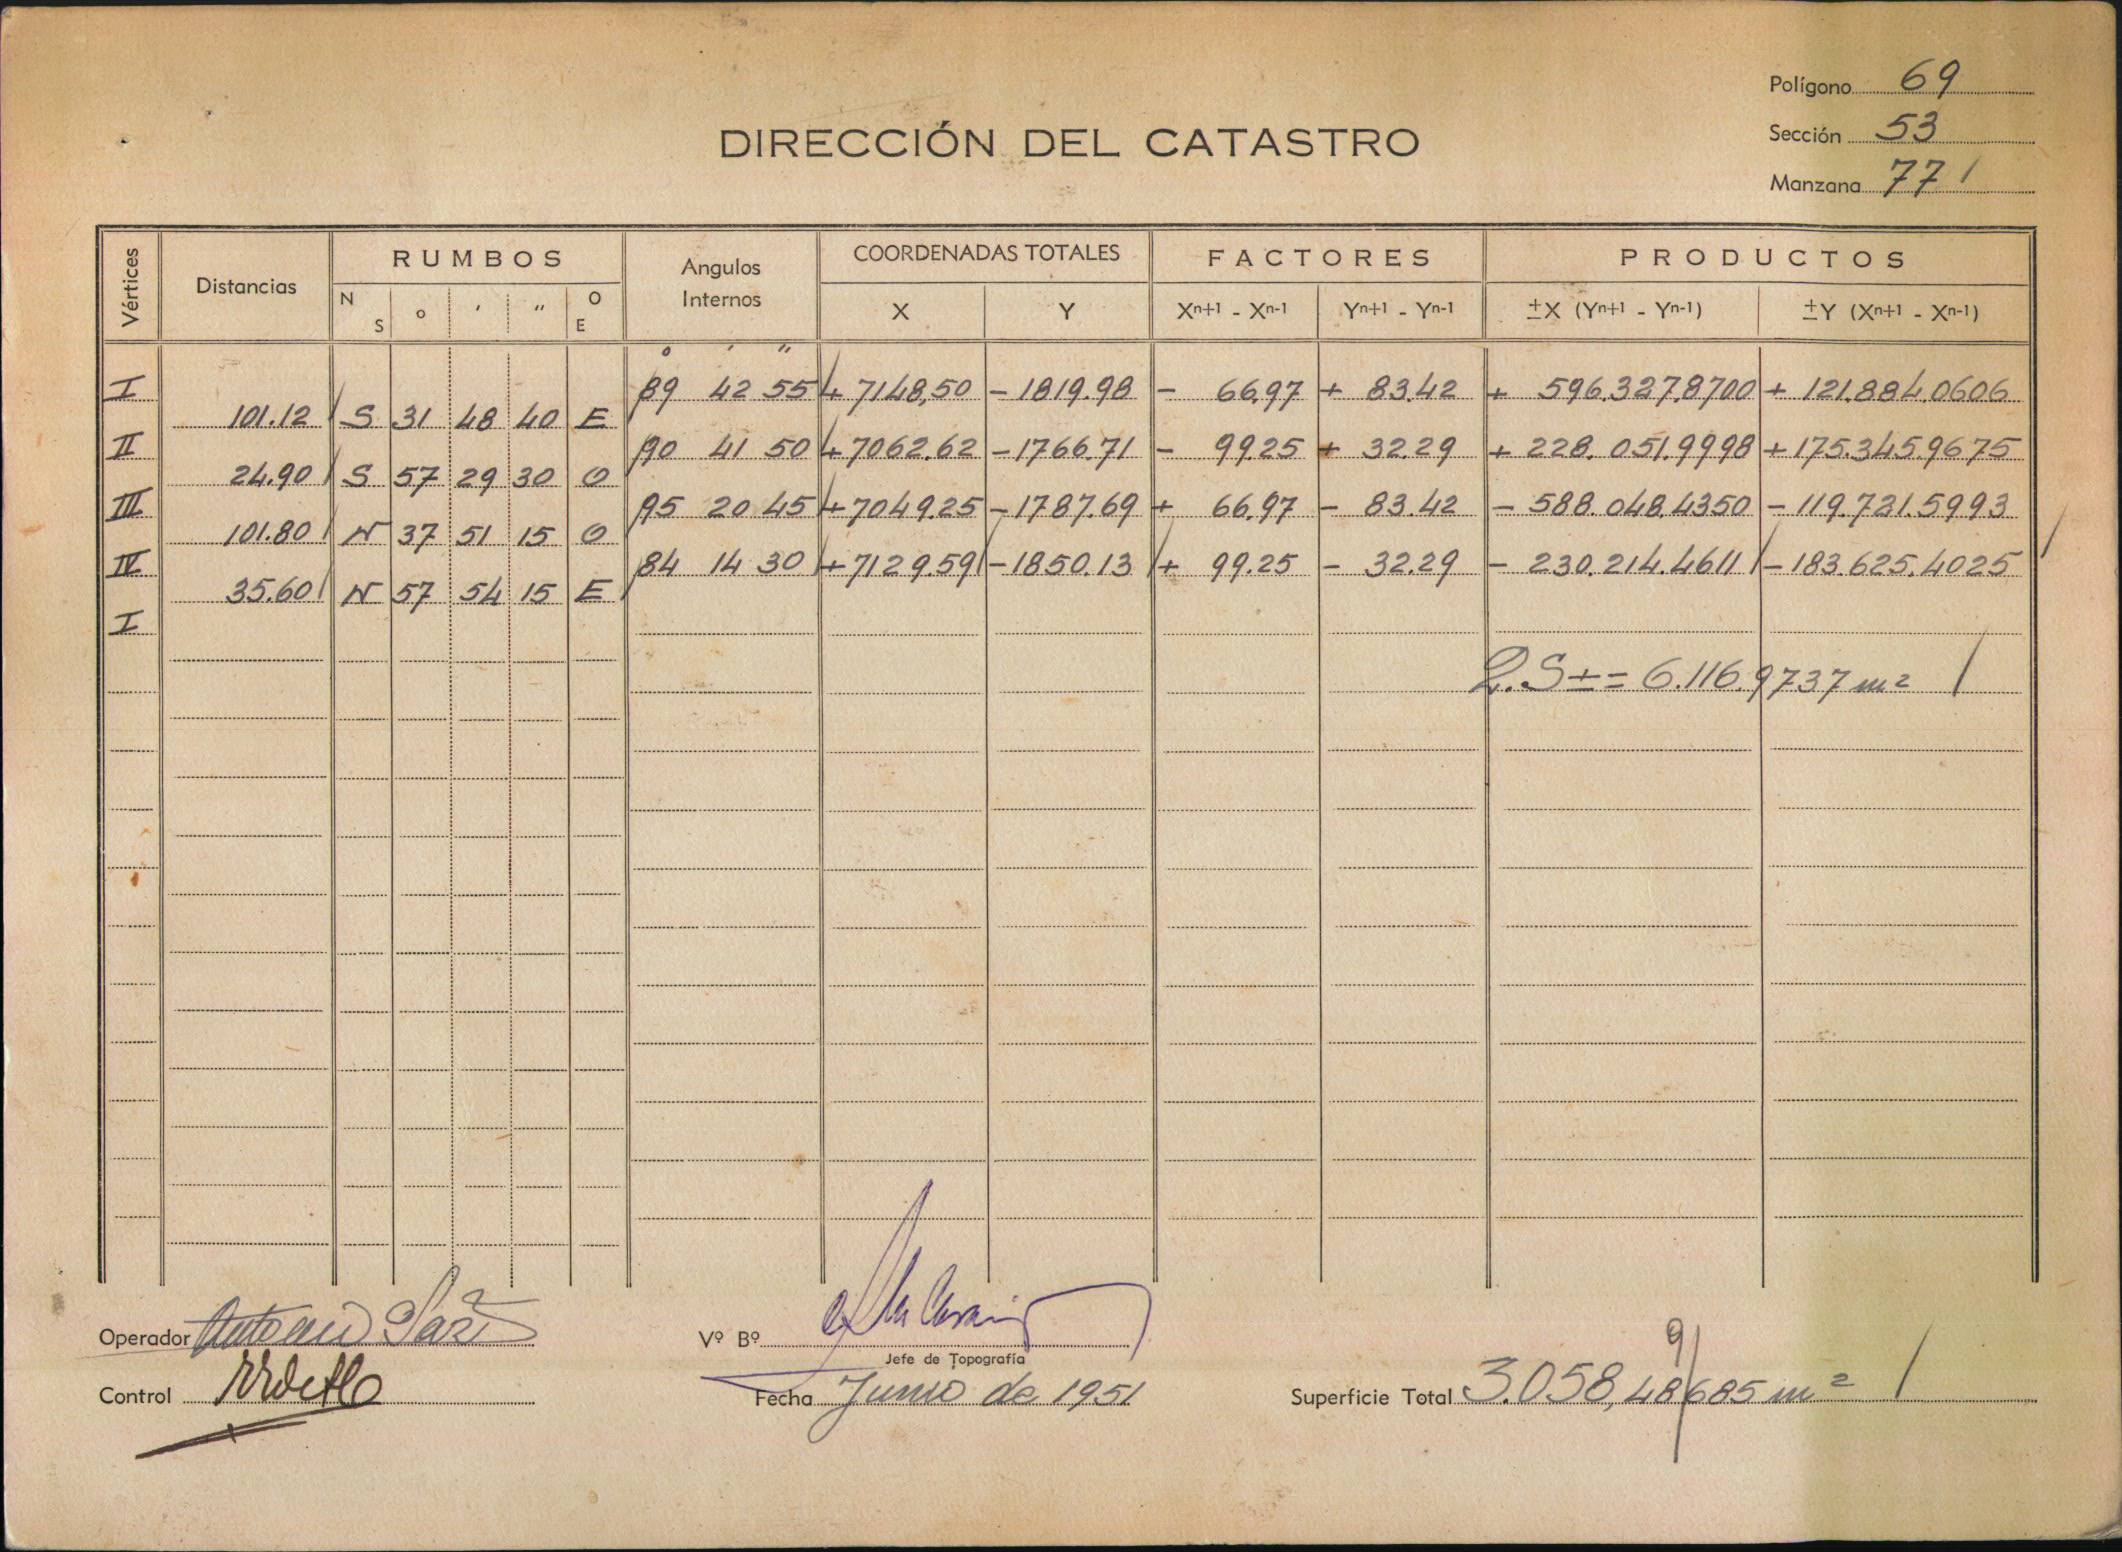 Polígono 69
DIRECCIÓN DEL CATASTRO
Sección 53
Manzana 771
Vértices Distancias RUMBOS Angulos Internos COORDENADAS TOTALES FACTORES PRODUCTOS
N S o ′ ″ O E X Y Xn+1 - Xn-1 Yn+1 - Yn-1 ±X (Yn+1 - Yn-1) ±Y (Xn+1 - Xn-1)
° ′ ″
I 89 42 55 + 7148,50 - 1819.98 - 66.97 + 83.42 + 596.327.8700 + 121.884.0606
101.12 S 31 48 40 E
II 90 41 50 + 7062.62 - 1766.71 - 99.25 + 32.29 + 228.051.9998 + 175.345.9675
24.90 S 57 29 30 O
III 95 20 45 + 7049.25 - 1787.69 + 66.97 - 83.42 - 588.048.4350 - 119.721.5993
101.80 N 37 51 15 O
IV 84 14 30 + 7129.59 - 1850.13 + 99.25 - 32.29 - 230.214.4611 - 183.625.4025
35.60 N 57 54 15 E
I
2.S ± = 6.116.9737 m²
Operador Antonio
Vº Bº
Jefe de Topografía
Control
Fecha Junio de 1951
9
Superficie Total 3.058,48685 m²